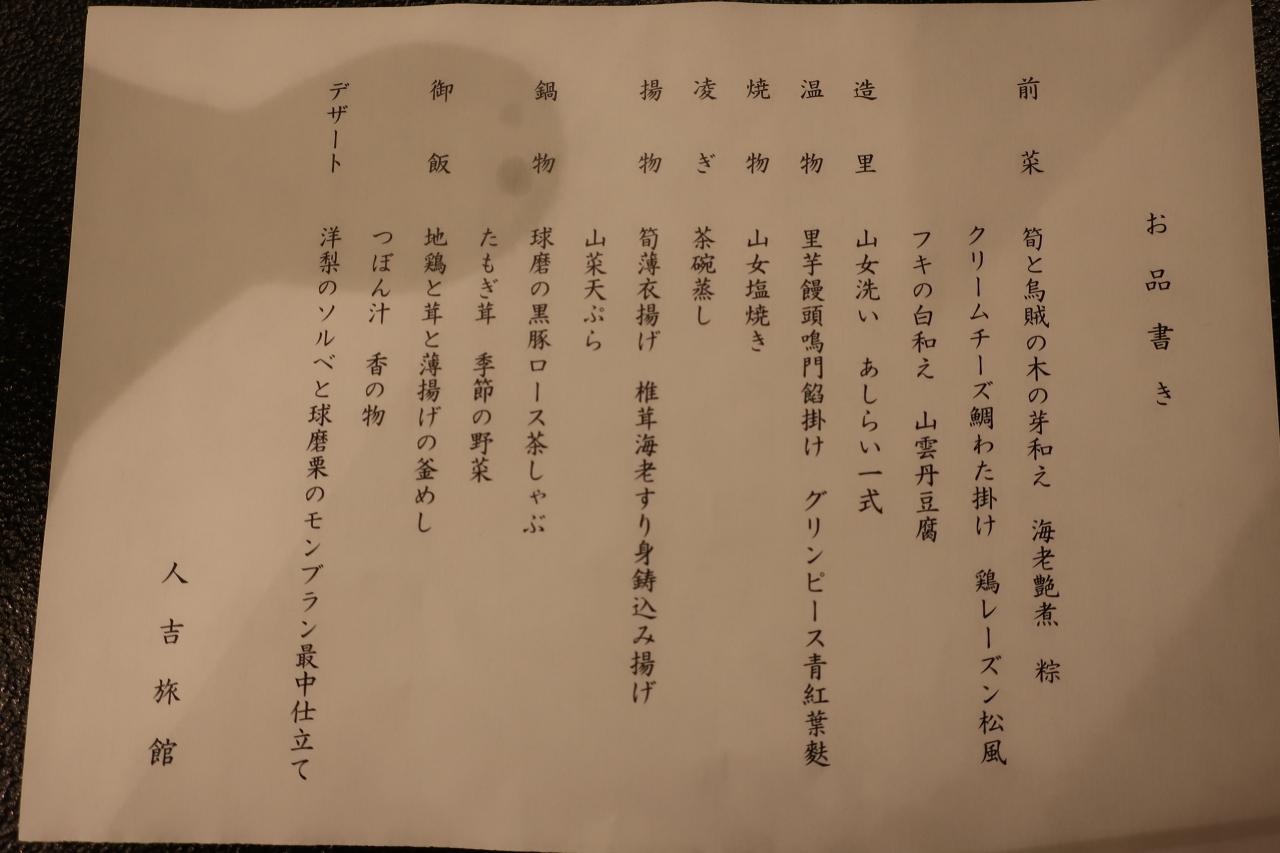 お品書き
前菜 筍と烏賊の木の芽和え 海老艶煮 粽
クリームチーズ鯛わた掛け 鶏レーズン松風
フキの白和え 山雲丹豆腐
造里 山女洗い あしらい一式
温物 里芋饅頭鳴門餡掛け グリンピース青紅葉麩
焼物 山女塩焼き
凌ぎ 茶碗蒸し
揚物 筍薄衣揚げ 椎茸海老すり身鋳込み揚げ
山菜天ぷら
鍋物 球磨の黒豚ロース茶しゃぶ
たもぎ茸 季節の野菜
御飯 地鶏と茸と薄揚げの釜めし
つぼん汁 香の物
デザート 洋梨のソルベと球磨栗のモンブラン最中仕立て
人吉旅館